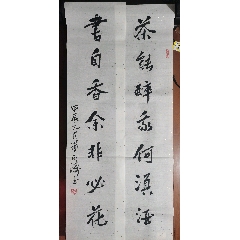 茶能醉我何湏酒
書自香余非必花
甲辰